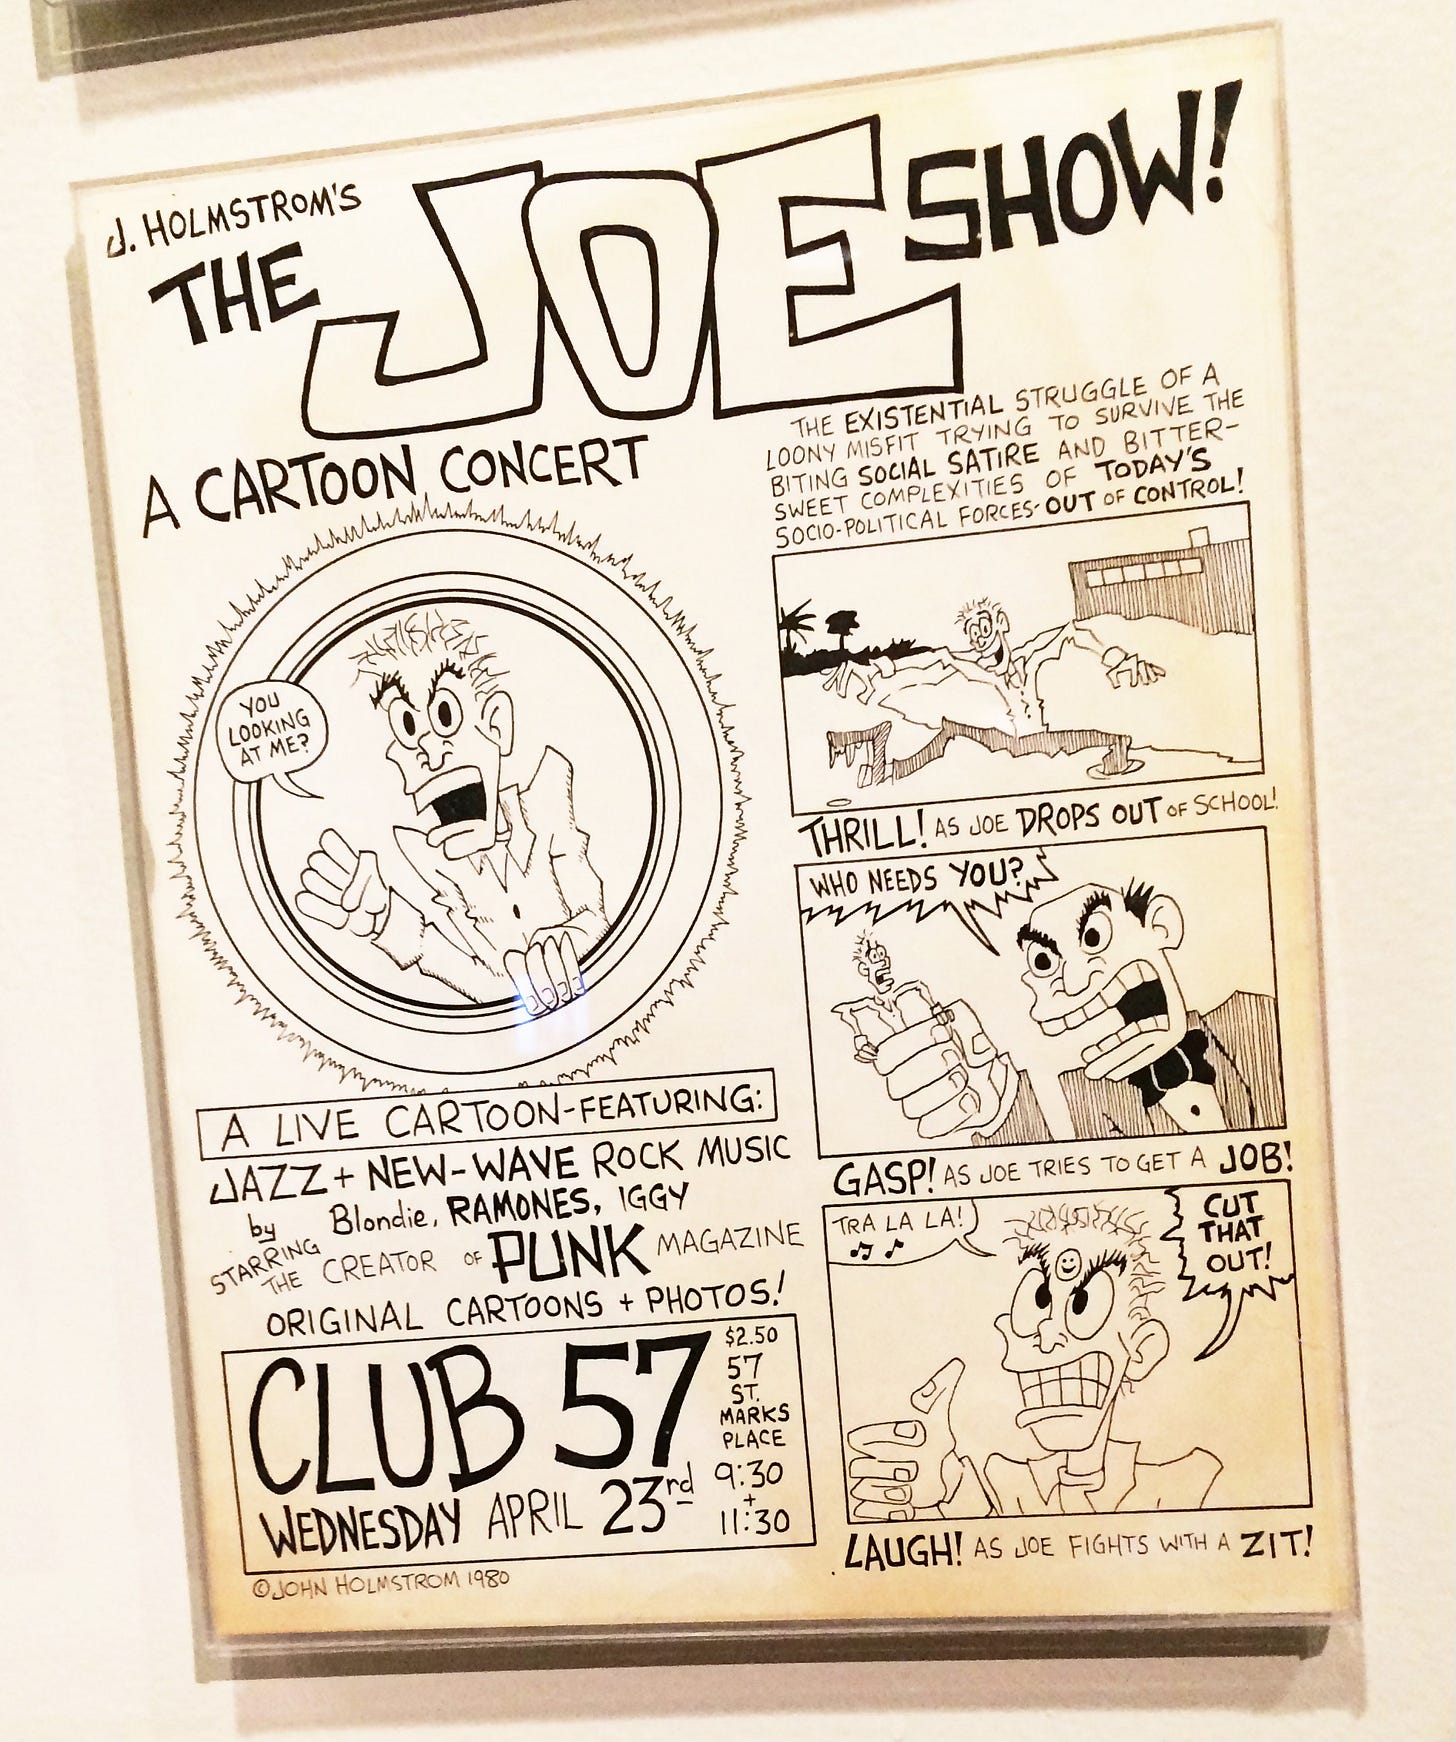 J. HOLMSTROM'S
THE JOE SHOW!
A CARTOON CONCERT
YOU
LOOKING
AT ME?
A LIVE CARTOON-FEATURING:
JAZZ + NEW-WAVE ROCK MUSIC
by Blondie, RAMONES, IGGY
STARRING THE CREATOR OF PUNK MAGAZINE
ORIGINAL CARTOONS + PHOTOS!
CLUB 57
WEDNESDAY APRIL 23rd
$2.50
57
ST.
MARKS
PLACE
9:30
+
11:30
©JOHN HOLMSTROM 1980
THE EXISTENTIAL STRUGGLE OF A
LOONY MISFIT TRYING TO SURVIVE THE
BITING SOCIAL SATIRE AND BITTER-
SWEET COMPLEXITIES OF TODAY'S
SOCIO-POLITICAL FORCES-OUT OF CONTROL!
THRILL! AS JOE DROPS OUT OF SCHOOL!
WHO NEEDS YOU?
GASP! AS JOE TRIES TO GET A JOB!
TRA LA LA!
CUT
THAT
OUT!
LAUGH! AS JOE FIGHTS WITH A ZIT!